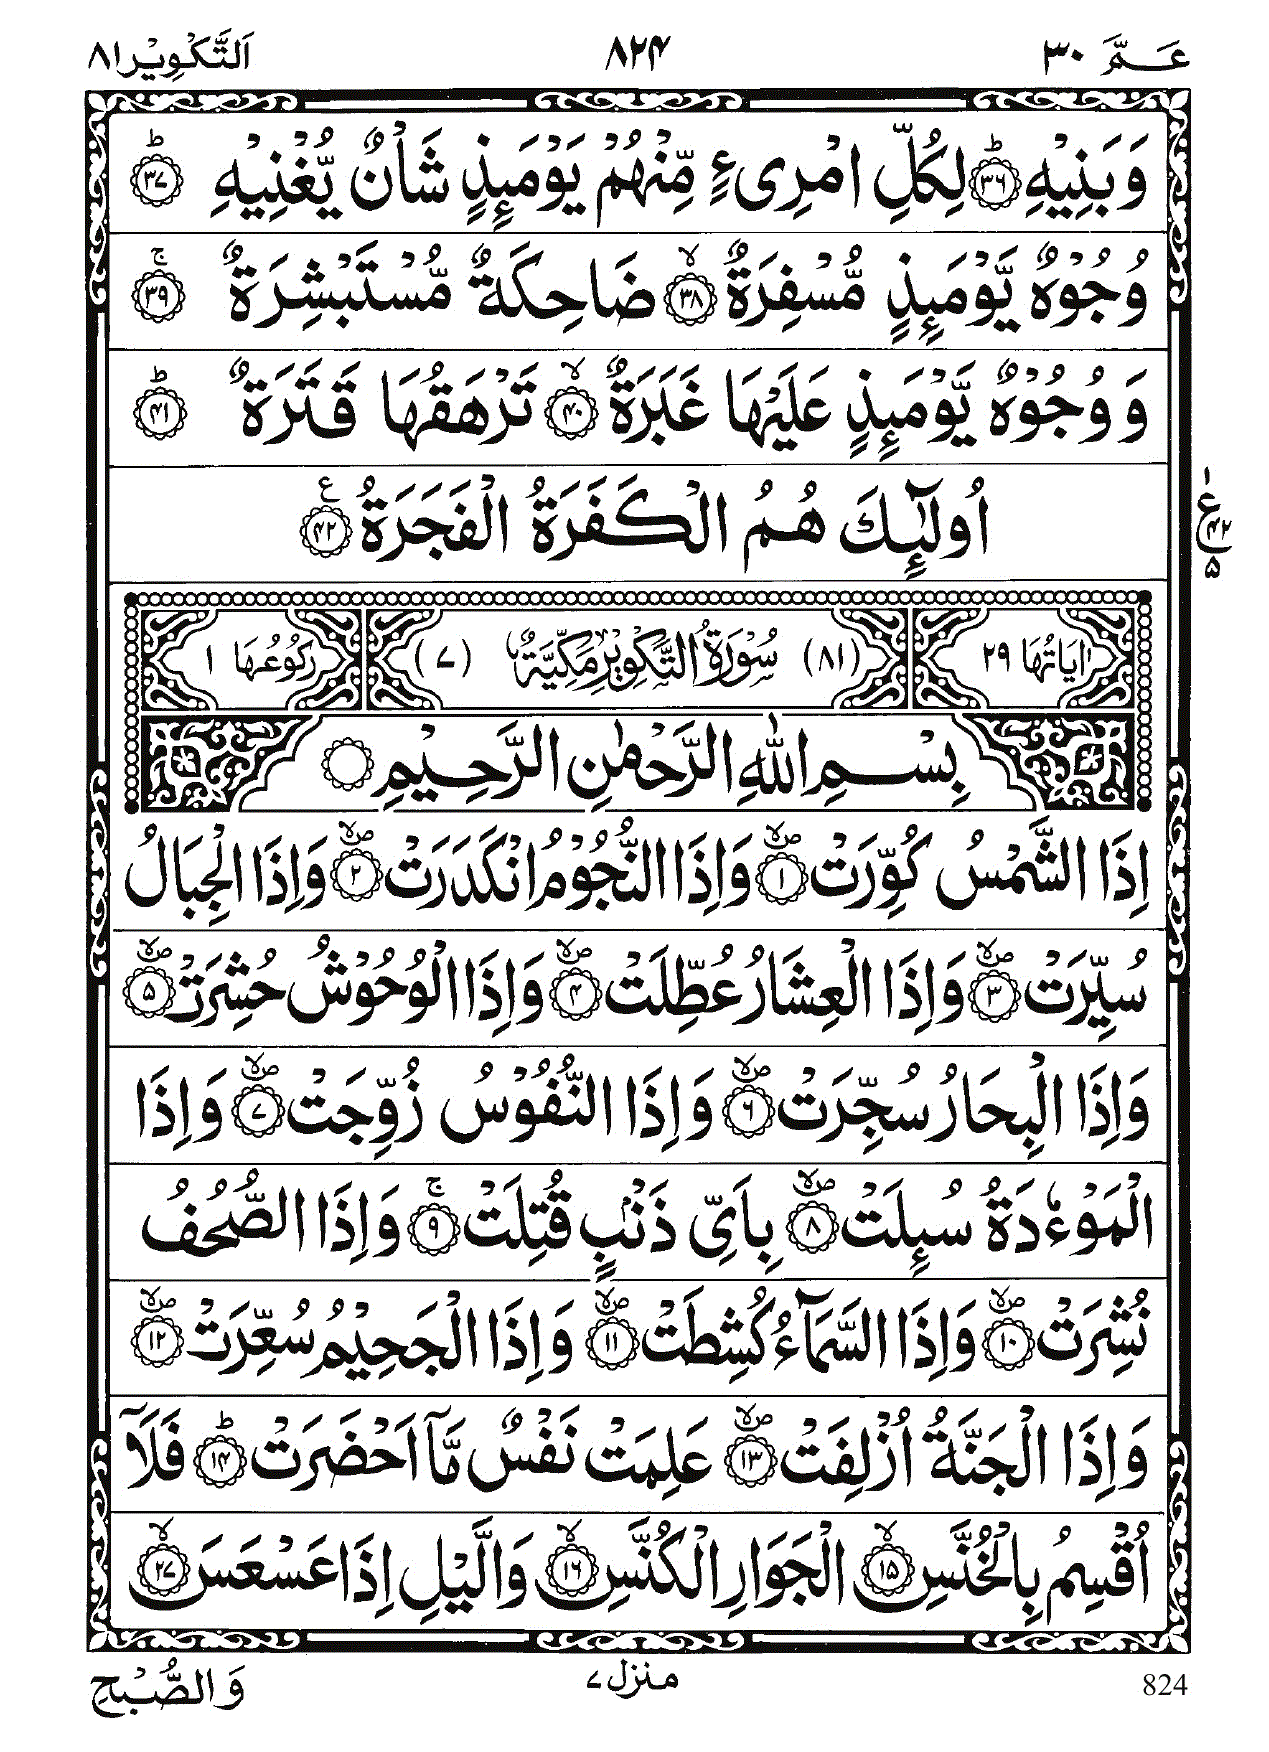 عَـمَّ ۳۰ ۸۲۴ اَلتَّكْوِيْر ۸۱
وَ بَنِيْهِ ؕ ﴿۳۶﴾ لِكُلِّ امْرِیءٍ مِّنْهُمْ يَوْمَىِٕذٍ شَاْنٌ يُّغْنِيْهِ ؕ ﴿۳۷﴾
وُجُوْهٌ يَّوْمَىِٕذٍ مُّسْفِرَةٌ ۙ ﴿۳۸﴾ ضَاحِكَةٌ مُّسْتَبْشِرَةٌ ۚ ﴿۳۹﴾
وَ وُجُوْهٌ يَّوْمَىِٕذٍ عَلَيْهَا غَبَرَةٌ ۙ ﴿۴۰﴾ تَرْهَقُهَا قَتَرَةٌ ؕ ﴿۴۱﴾
اُولٰٓىِٕكَ هُمُ الْكَفَرَةُ الْفَجَرَةُ ع ﴿۴۲﴾
۱ ع ۴۲ ۵
اٰيَاتُهَا ۲۹ (۸۱) سُوْرَةُ التَّكْوِيْرِ مَكِّيَّةٌ (۷) رُكُوْعُهَا ۱
بِسْمِ اللّٰهِ الرَّحْمٰنِ الرَّحِيْمِ
اِذَا الشَّمْسُ كُوِّرَتْ ﴿۱﴾ وَاِذَا النُّجُوْمُ انْكَدَرَتْ ﴿۲﴾ وَاِذَا الْجِبَالُ
سُيِّرَتْ ﴿۳﴾ وَاِذَا الْعِشَارُ عُطِّلَتْ ﴿۴﴾ وَاِذَا الْوُحُوْشُ حُشِرَتْ ﴿۵﴾
وَاِذَا الْبِحَارُ سُجِّرَتْ ﴿۶﴾ وَاِذَا النُّفُوْسُ زُوِّجَتْ ﴿۷﴾ وَاِذَا
الْمَوْءٗدَةُ سُىِٕلَتْ ﴿۸﴾ بِاَیِّ ذَنْۢبٍ قُتِلَتْ ۚ ﴿۹﴾ وَاِذَا الصُّحُفُ
نُشِرَتْ ﴿۱۰﴾ وَاِذَا السَّمَآءُ كُشِطَتْ ﴿۱۱﴾ وَاِذَا الْجَحِيْمُ سُعِّرَتْ ﴿۱۲﴾
وَاِذَا الْجَنَّةُ اُزْلِفَتْ ﴿۱۳﴾ عَلِمَتْ نَفْسٌ مَّاۤ اَحْضَرَتْ ؕ ﴿۱۴﴾ فَلَاۤ
اُقْسِمُ بِالْخُنَّسِ ۙ ﴿۱۵﴾ الْجَوَارِ الْكُنَّسِ ۙ ﴿۱۶﴾ وَالَّيْلِ اِذَا عَسْعَسَ ۙ ﴿۲۷﴾
824 منزل ۷ وَالصُّبْحِ